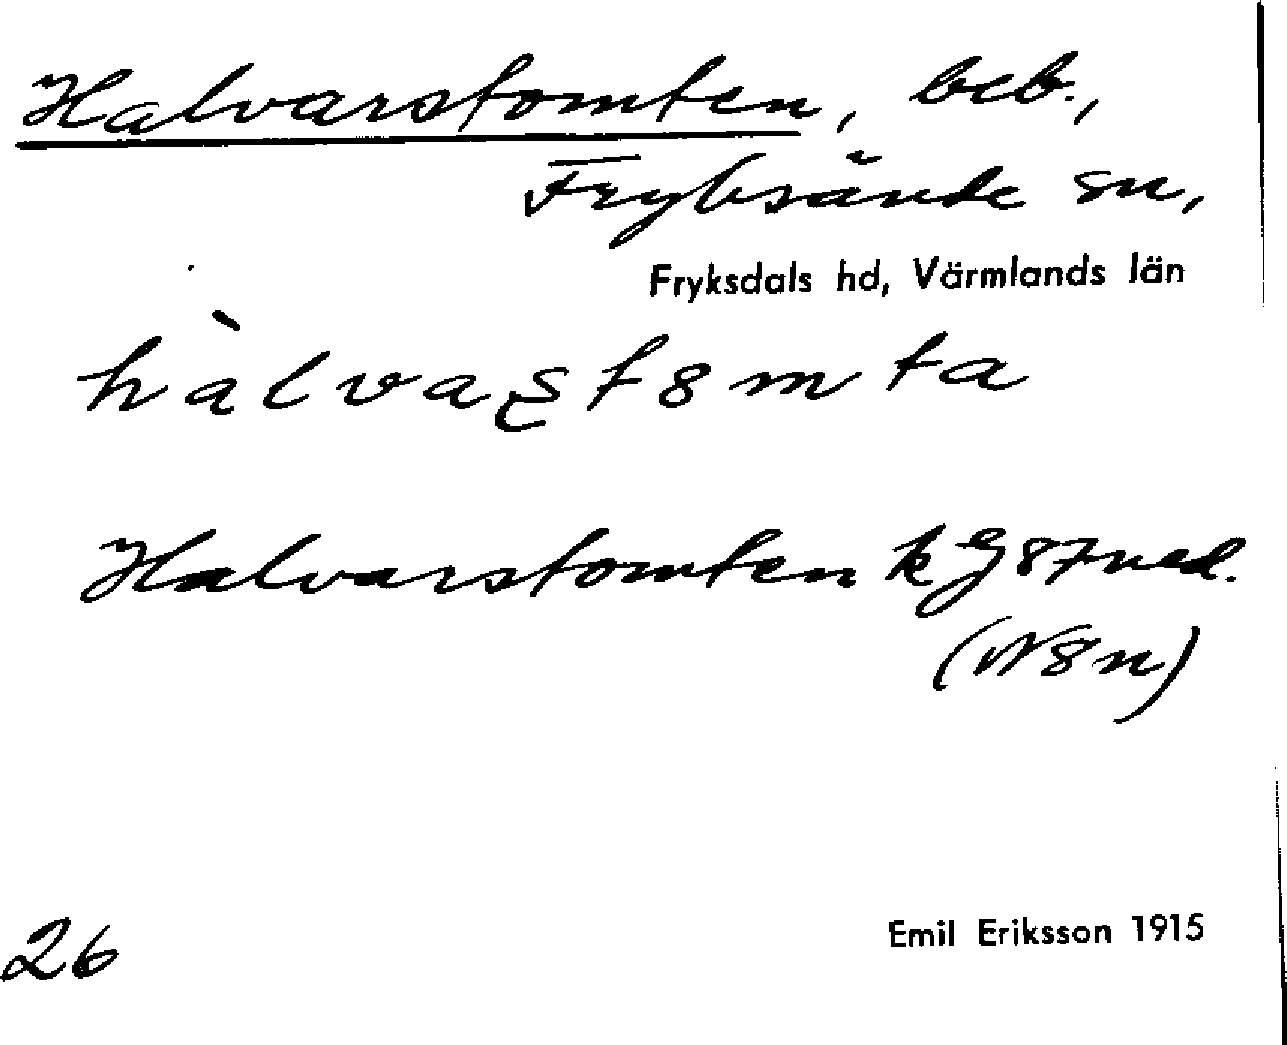 Halvarstomten, beb.,
Fryksände sn,
Fryksdals hd, Värmlands län
hàlvaʂt8mta
Halvarstomten
(N8n)
26
Emil Eriksson 1915